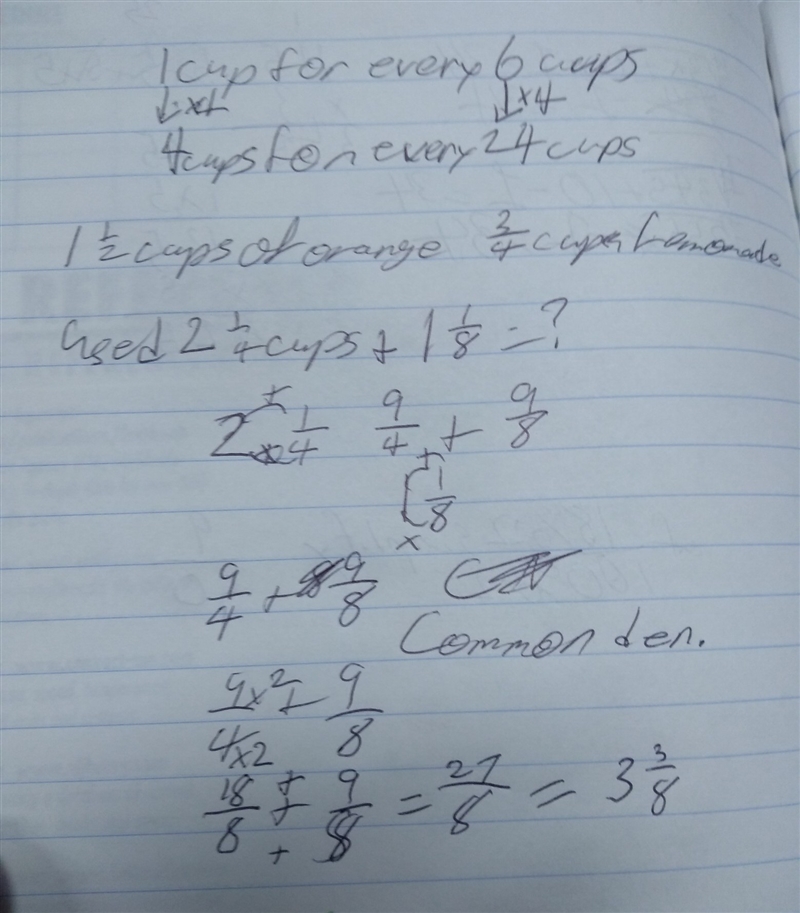 1 cup for every 6 cups
↓×4 ↓×4
4 cups for every 24 cups
1 1/2 cups of orange 3/4 cups Lemonade
used 2 1/4 cups + 1 1/8 = ?
2 1/4 9/4 + 9/8
+ ×
1 1/8
+ ×
9/4 + 9/8
Common den.
9×2/4×2 + 9/8
18/8 + 9/8 = 27/8 = 3 3/8
+